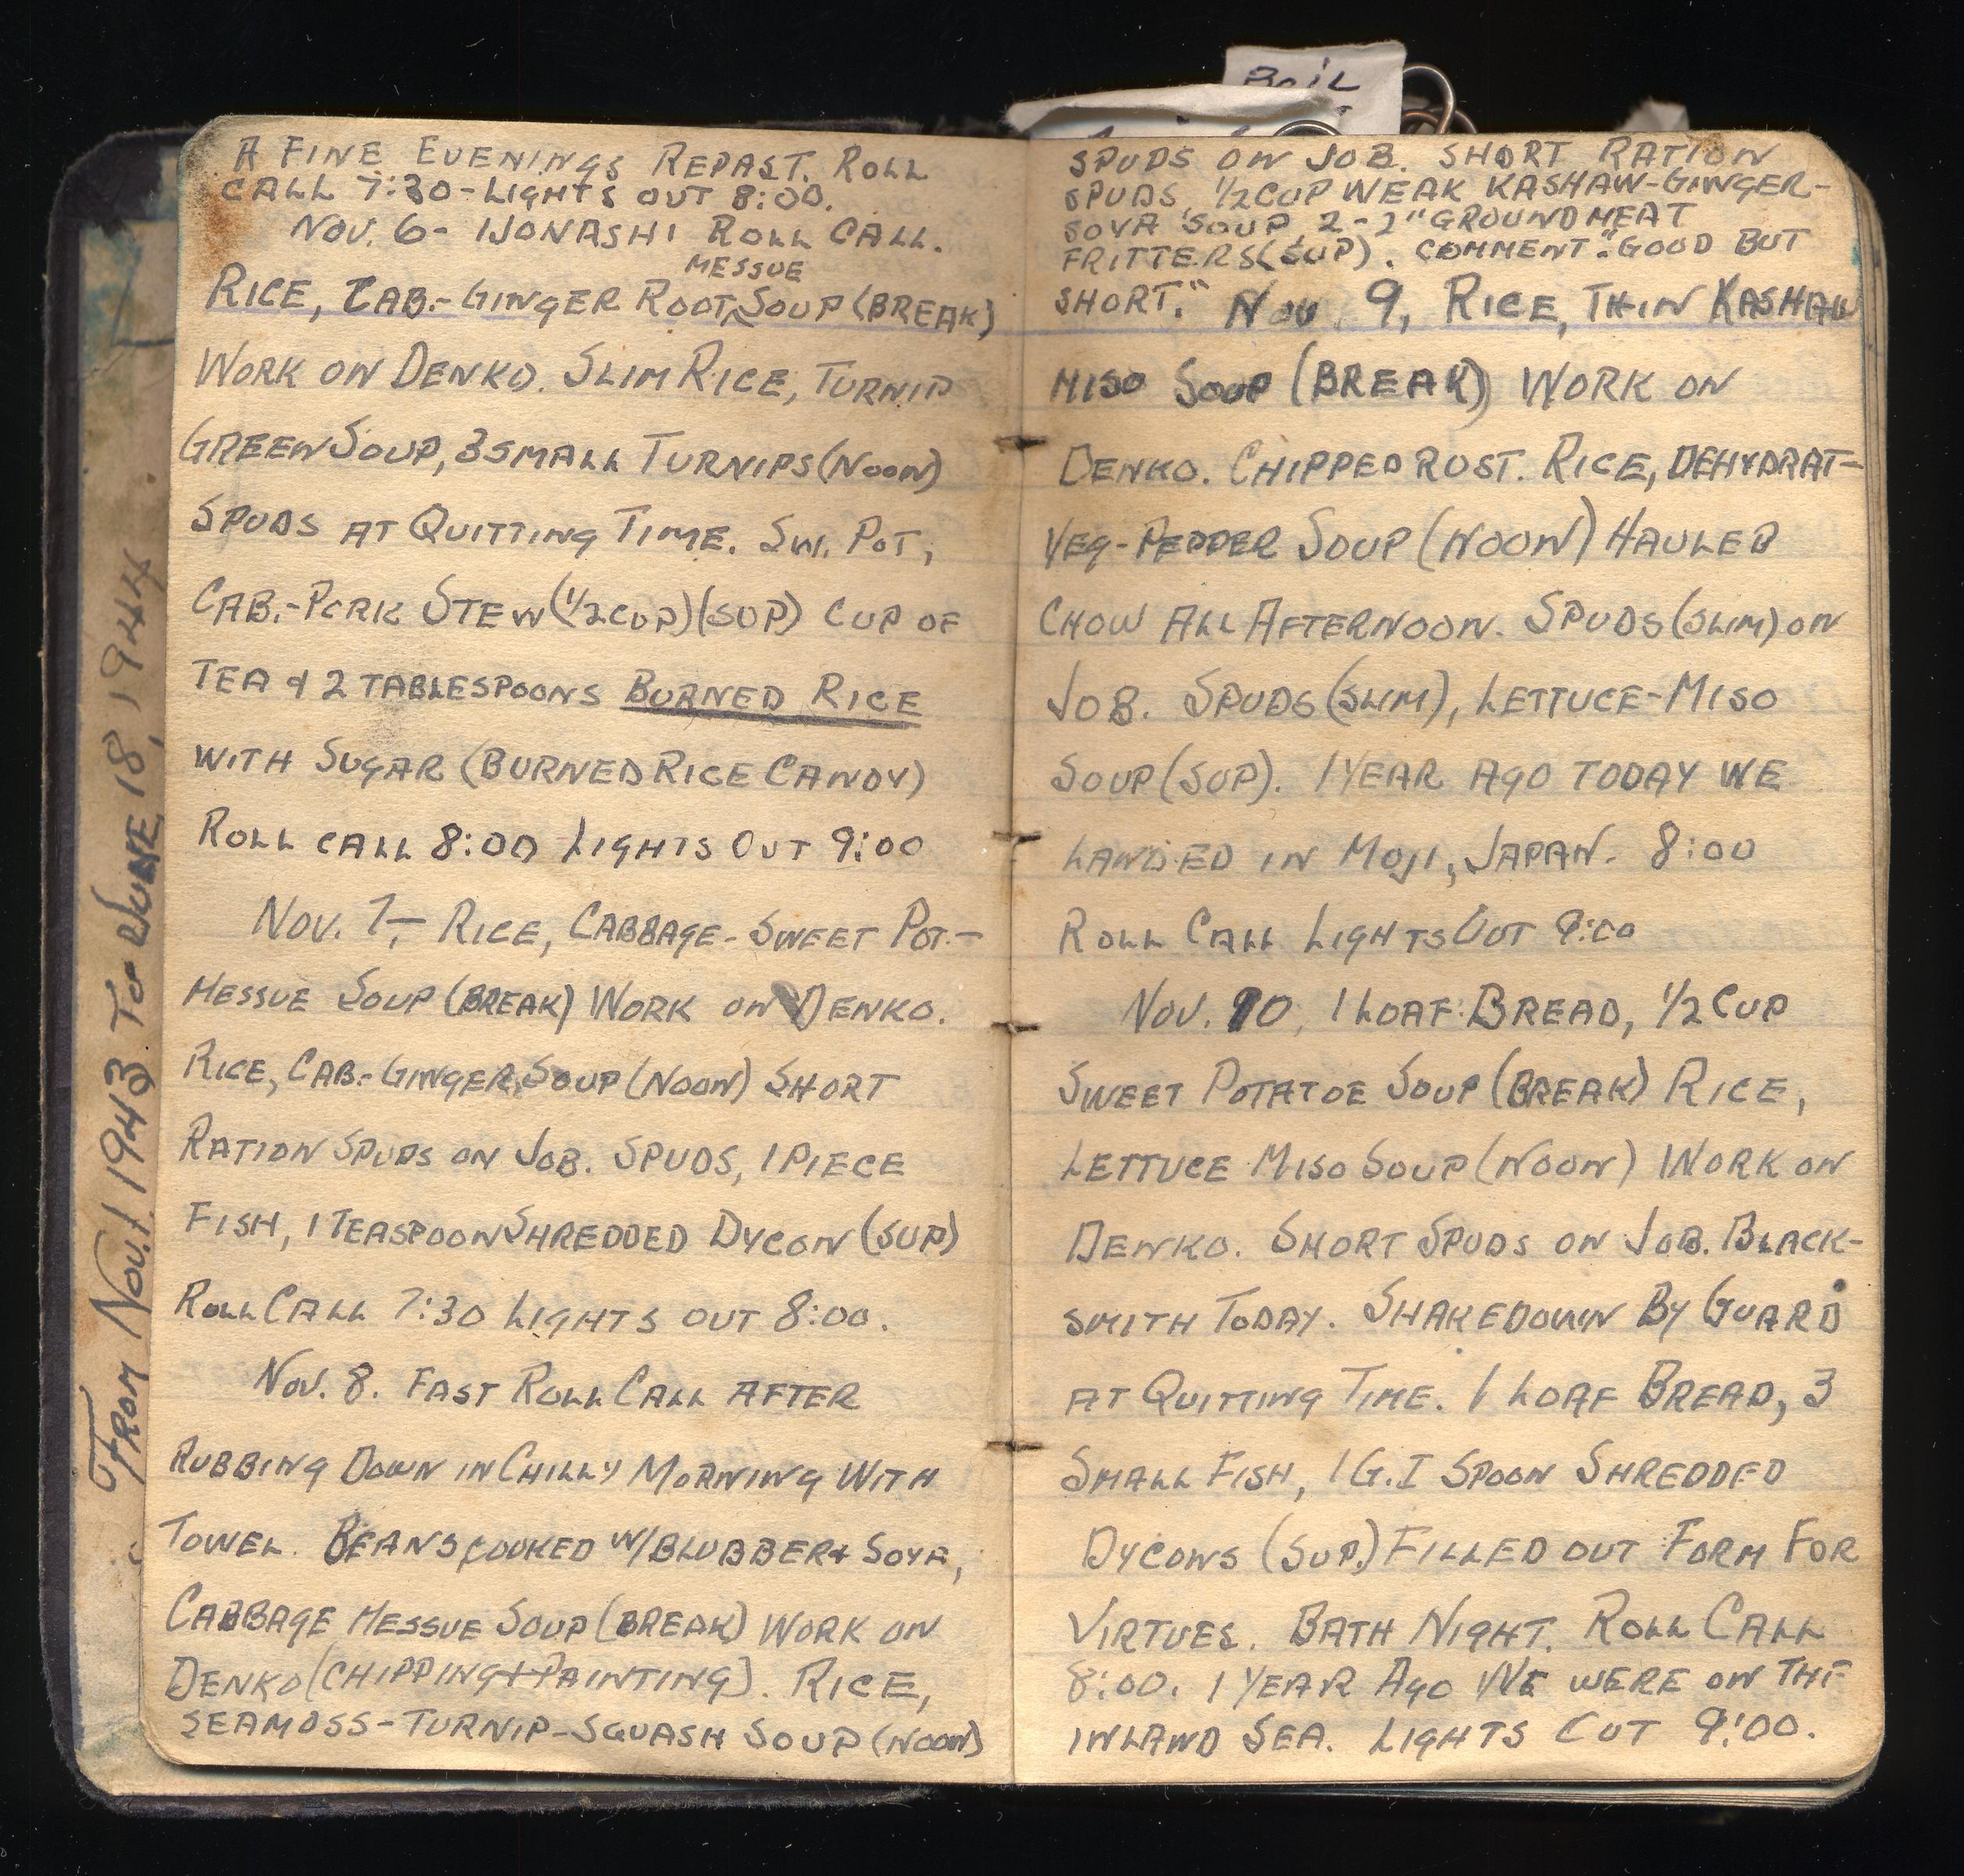 From Nov. 1 1943 To June 18, 1944
A FINE EVENINGS REPAST. ROLL
CALL 7:30 - LIGHTS OUT 8:00.
NOV. 6 - WONASHI ROLL CALL.
MESSUE
RICE, CAB.- GINGER ROOT, SOUP (BREAK)
WORK ON DENKO. SLIM RICE, TURNIP
GREEN SOUP, 3 SMALL TURNIPS (NOON)
SPUDS AT QUITTING TIME. SW. POT,
CAB.-PORK STEW (1/2 CUP) (SUP) CUP OF
TEA & 2 TABLESPOONS BURNED RICE
WITH SUGAR (BURNED RICE CANDY)
ROLL CALL 8:00 LIGHTS OUT 9:00
NOV. 7 - RICE, CABBAGE - SWEET POT.-
MESSUE SOUP (BREAK) WORK ON DENKO.
RICE, CAB.- GINGER SOUP (NOON) SHORT
RATION SPUDS ON JOB. SPUDS, 1 PIECE
FISH, 1 TEASPOON SHREDDED DYCON (SUP)
ROLL CALL 7:30 LIGHTS OUT 8:00.
NOV. 8. FAST ROLL CALL AFTER
RUBBING DOWN IN CHILLY MORNING WITH
TOWEL. BEANS COOKED W/BLUBBER & SOYA,
CABBAGE MESSUE SOUP (BREAK) WORK ON
DENKO (CHIPPING & PAINTING). RICE,
SEAMOSS - TURNIP - SQUASH SOUP (NOON)
BOIL
SPUDS ON JOB. SHORT RATION
SPUDS, 1/2 CUP WEAK KASHAW-GINGER-
SOYA SOUP, 2 - 2" GROUND MEAT
FRITTERS (SUP). COMMENT: "GOOD BUT
SHORT." NOV 9, RICE, THIN KASHAW
MISO SOUP (BREAK) WORK ON
DENKO. CHIPPED RUST. RICE, DEHYDRAT-
VEG-PEPPER SOUP (NOON) HAULED
CHOW ALL AFTERNOON. SPUDS (SLIM) ON
JOB. SPUDS (SLIM), LETTUCE-MISO
SOUP (SUP). 1 YEAR AGO TODAY WE
LANDED IN MOJI, JAPAN. 8:00
ROLL CALL LIGHTS OUT 9:00
NOV. 10, 1 LOAF BREAD, 1/2 CUP
SWEET POTATOE SOUP (BREAK) RICE,
LETTUCE MISO SOUP (NOON) WORK ON
DENKO. SHORT SPUDS ON JOB. BLACK-
SMITH TODAY. SHAKEDOWN BY GUARD
AT QUITTING TIME. 1 LOAF BREAD, 3
SMALL FISH, 1 G.I SPOON SHREDDED
DYCONS (SUP.) FILLED OUT FORM FOR
VIRTUES. BATH NIGHT. ROLL CALL
8:00. 1 YEAR AGO WE WERE ON THE
INLAND SEA. LIGHTS OUT 9:00.